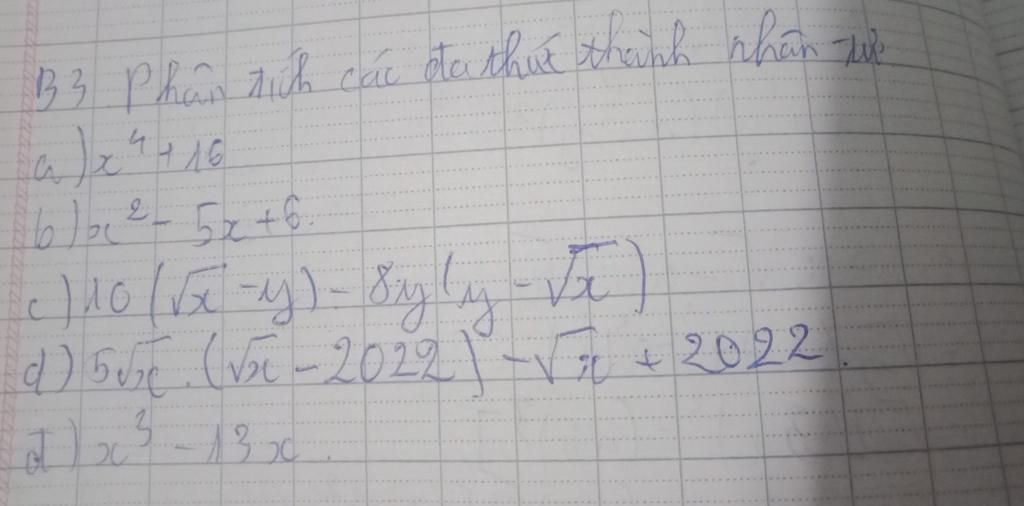 B3 Phân tích các đa thức thành nhân tử
a) x⁴ + 16
b) x² - 5x + 6.
c) 10 (√x - y) - 8y (y - √x)
d) 5√x . (√x - 2022) - √x + 2022.
đ) x³ - 13x.